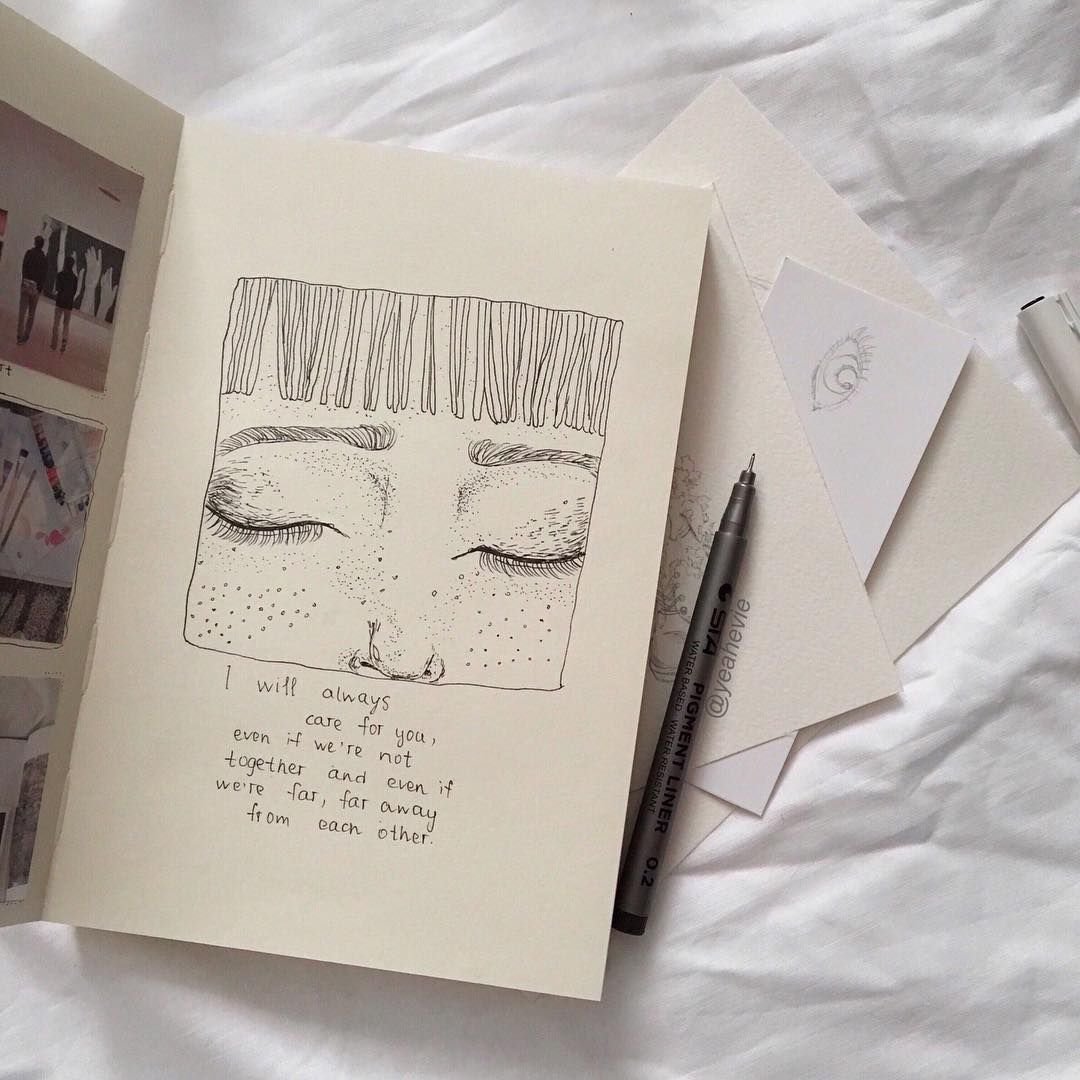 I will always
care for you,
even if we're not
together and even if
we're far, far away
from each other.
SIA
PIGMENT LINER 0.2
WATER BASED WATER RESISTANT
@yeahevie